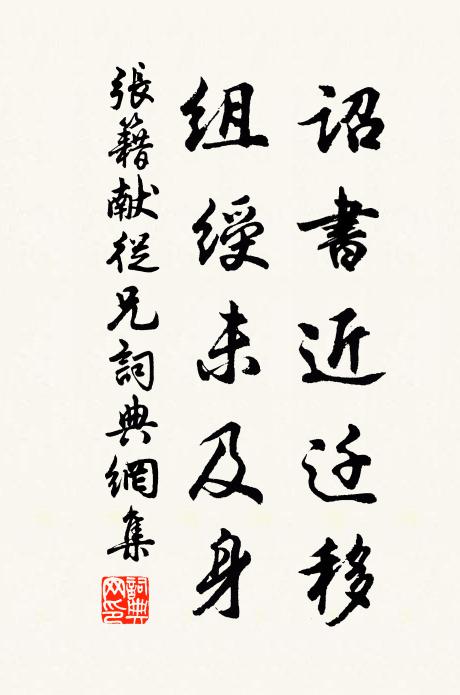 詔書近迁移
組綬未及身
張籍献從兄詞典網集
詞典网印